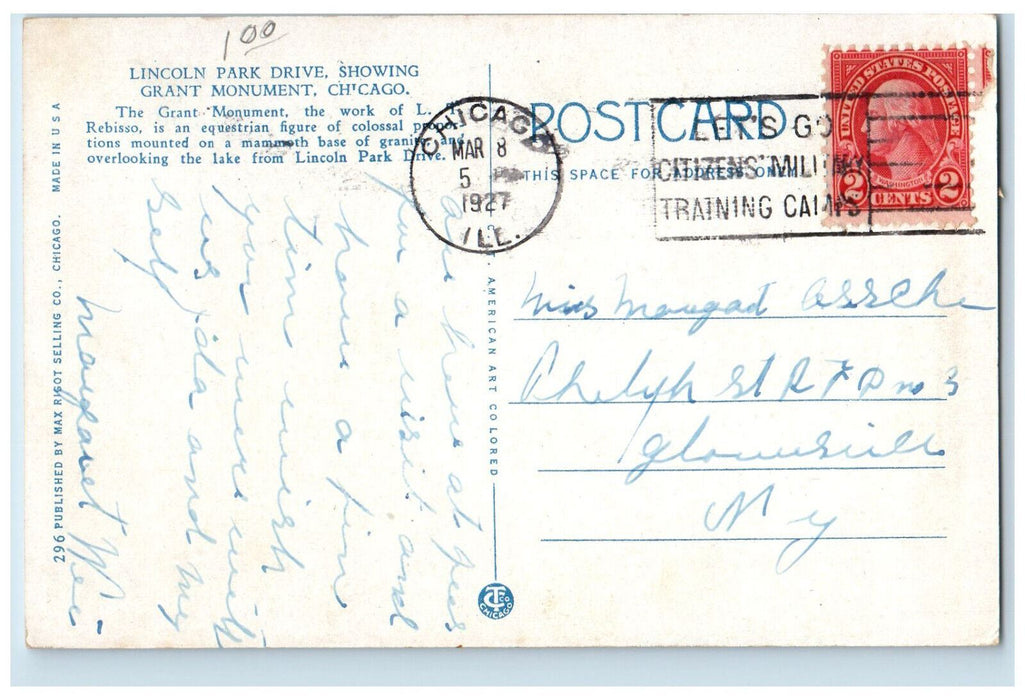 1 00
LINCOLN PARK DRIVE, SHOWING
GRANT MONUMENT, CHICAGO.
The Grant Monument, the work of L. T.
Rebisso, is an equestrian figure of colossal propor-
tions mounted on a mammoth base of granite and
overlooking the lake from Lincoln Park Drive.
POSTCARD
THIS SPACE FOR ADDRESS ONLY
CHICAGO
MAR 8
5 PM
1927
ILL.
LET'S GO
CITIZENS' MILITARY
TRAINING CAMPS
UNITED STATES POSTAGE
WASHINGTON
2 CENTS 2
MADE IN USA
296 PUBLISHED BY MAX RIGOT SELLING CO., CHICAGO.
AMERICAN ART COLORED
CTCO
CHICAGO
are here at
for a visit and
have a fine
time wish
you were with
us Ida and my
self
Margaret
Miss
St R F D no 3
N Y